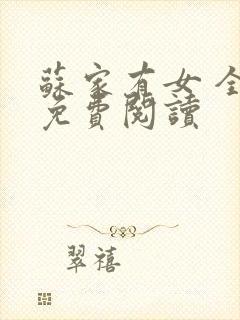 蘇家有女 全
免費閱讀
翠禧